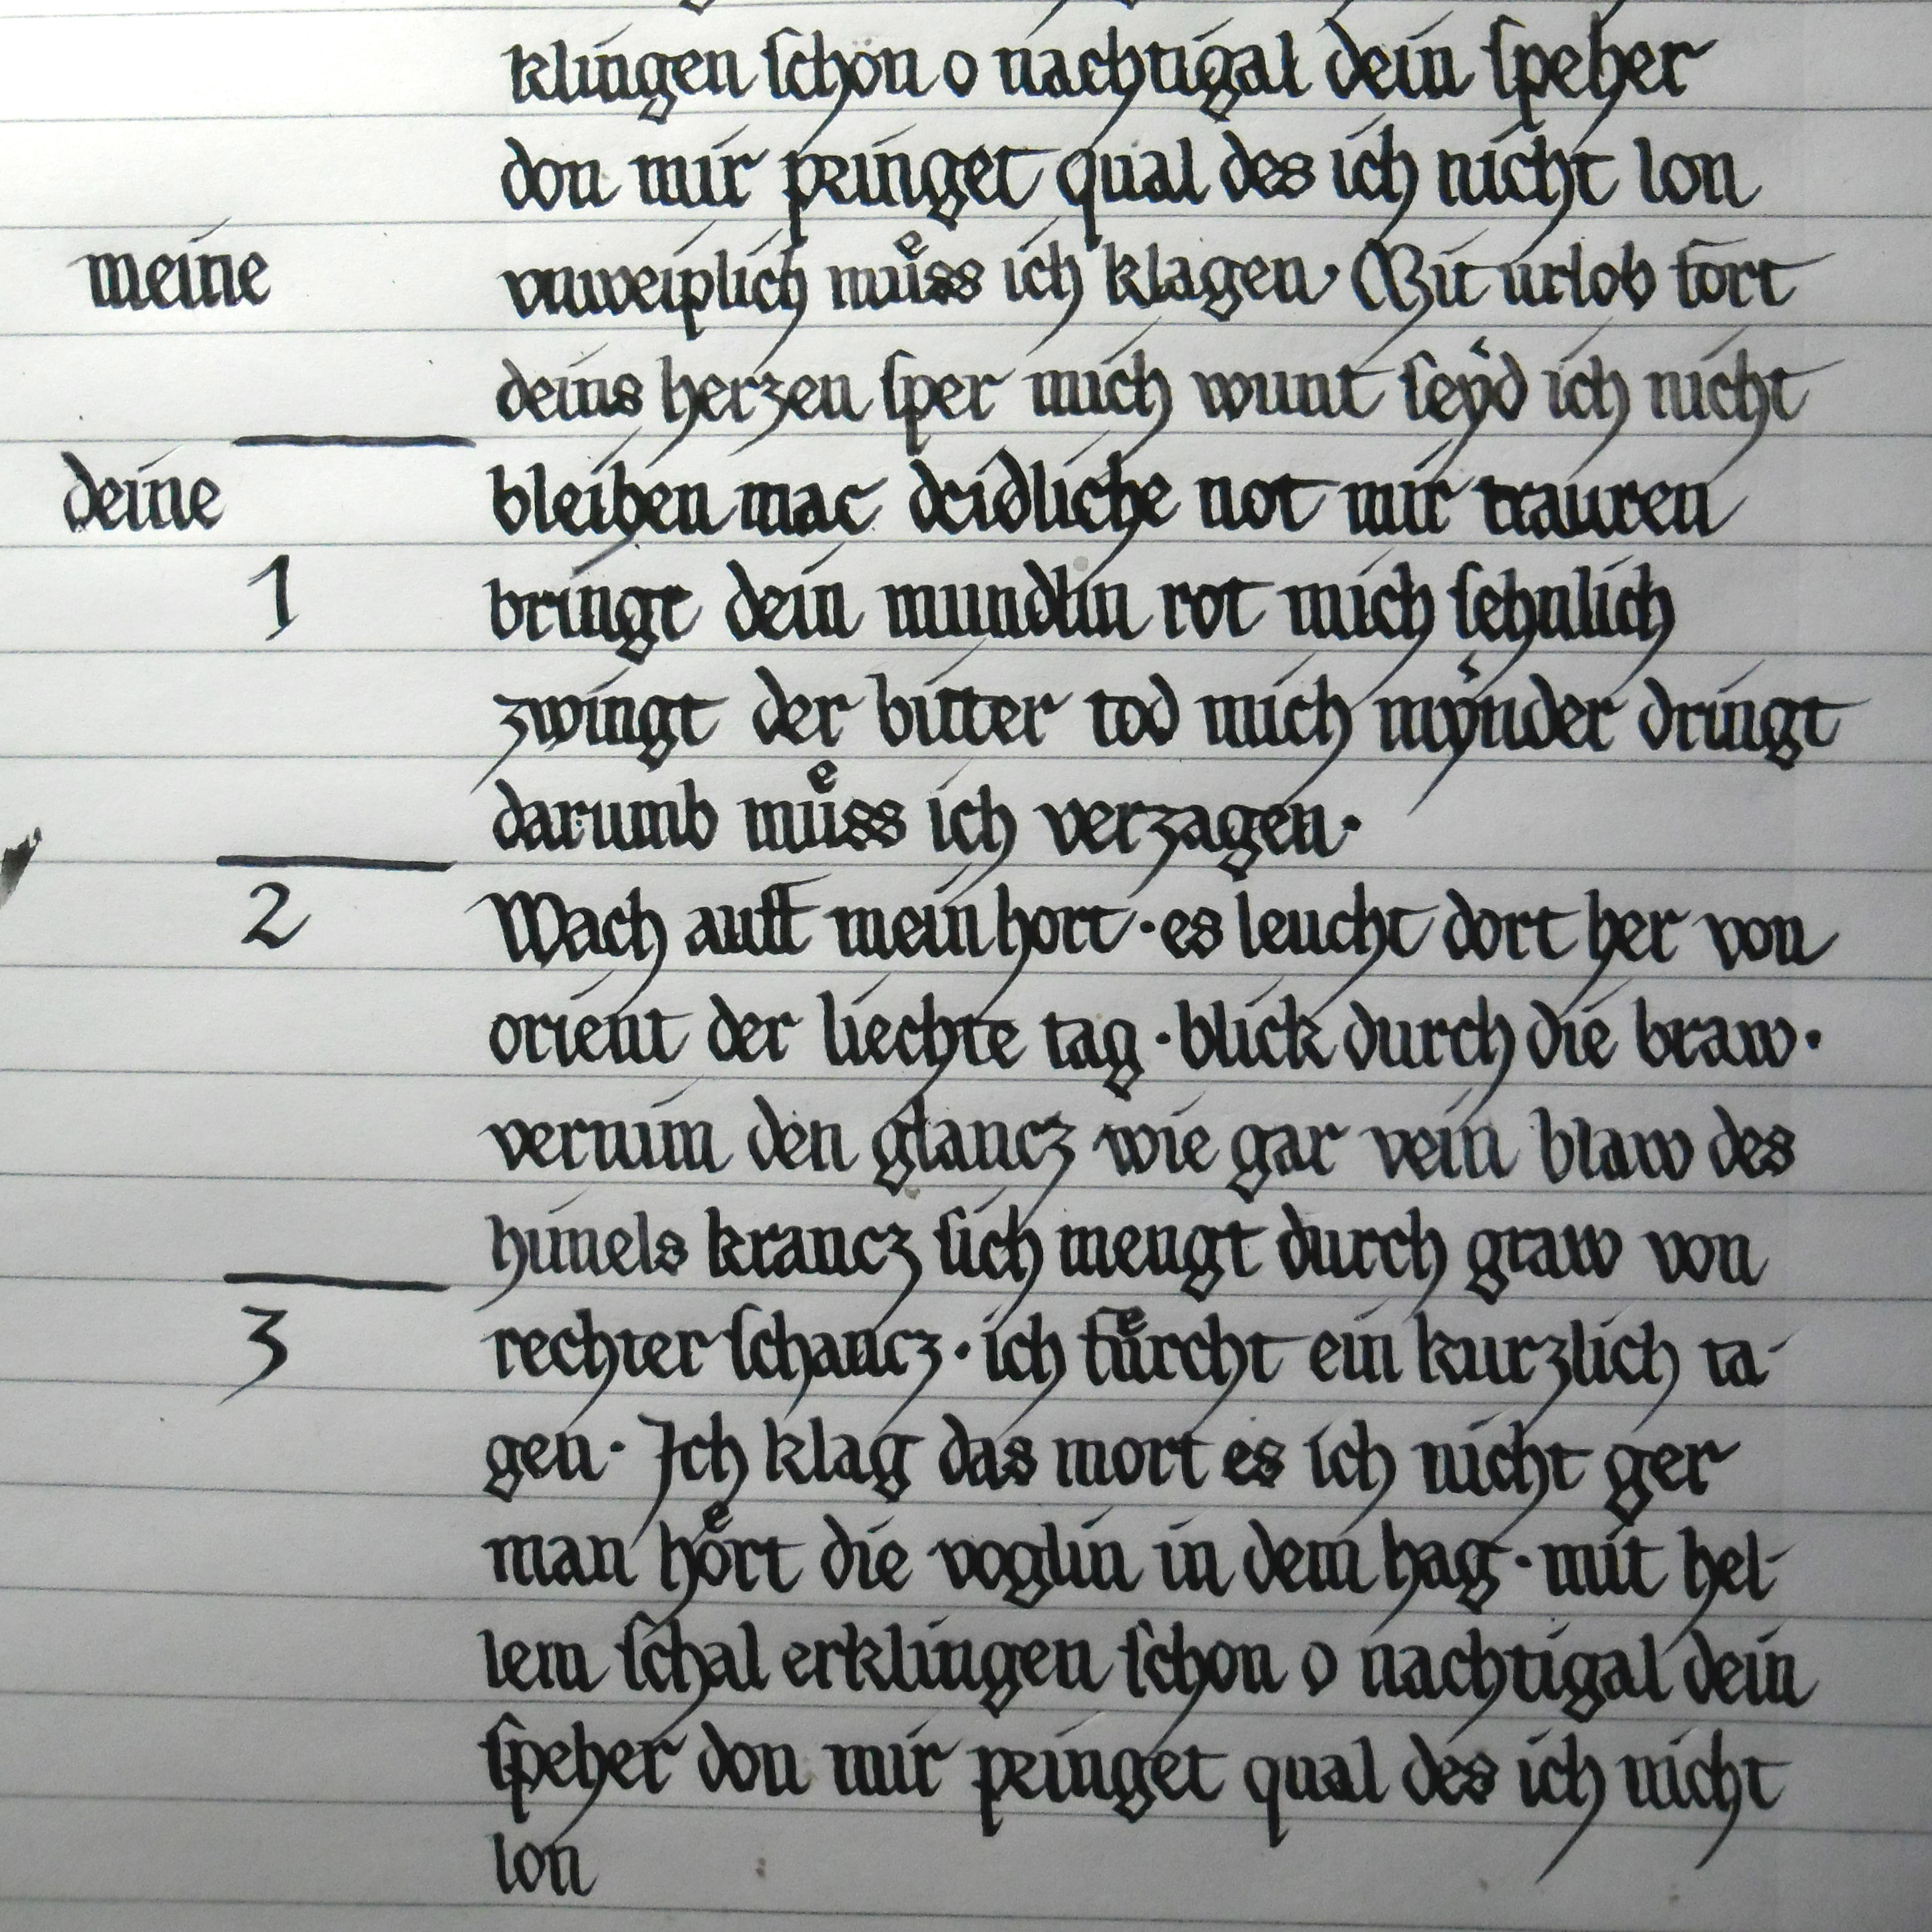 klingen ſchon o nachtigal dein ſpeher
don mir pringet qual des ich nicht lon
meine vnweiplich muͤss ich klagen· Mit urlob fort
deins herzen ſper mich wunt ſeyd ich nicht
deine bleiben mac deidliche not mir trauren
1 bringt dein mundlin rot mich ſehnlich
zwingt der bitter tod mich mynder dringt
darumb muͤss ich verzagen·
2 Wach auff mein hort·es leucht dort her von
orient der liechte tag·blick durch die braw·
vernim den glancz wie gar vein blaw des
himels krancz ſich mengt durch graw von
3 rechter ſchancz·ich fuͤrcht ein kurzlich ta-
gen· Ich klag das mort es ich nicht ger
man hoͤrt die voglin in dem hag·mit hel-
lem ſchal erklingen ſchon o nachtigal dein
ſpeher don mir pringet qual des ich nicht
lon